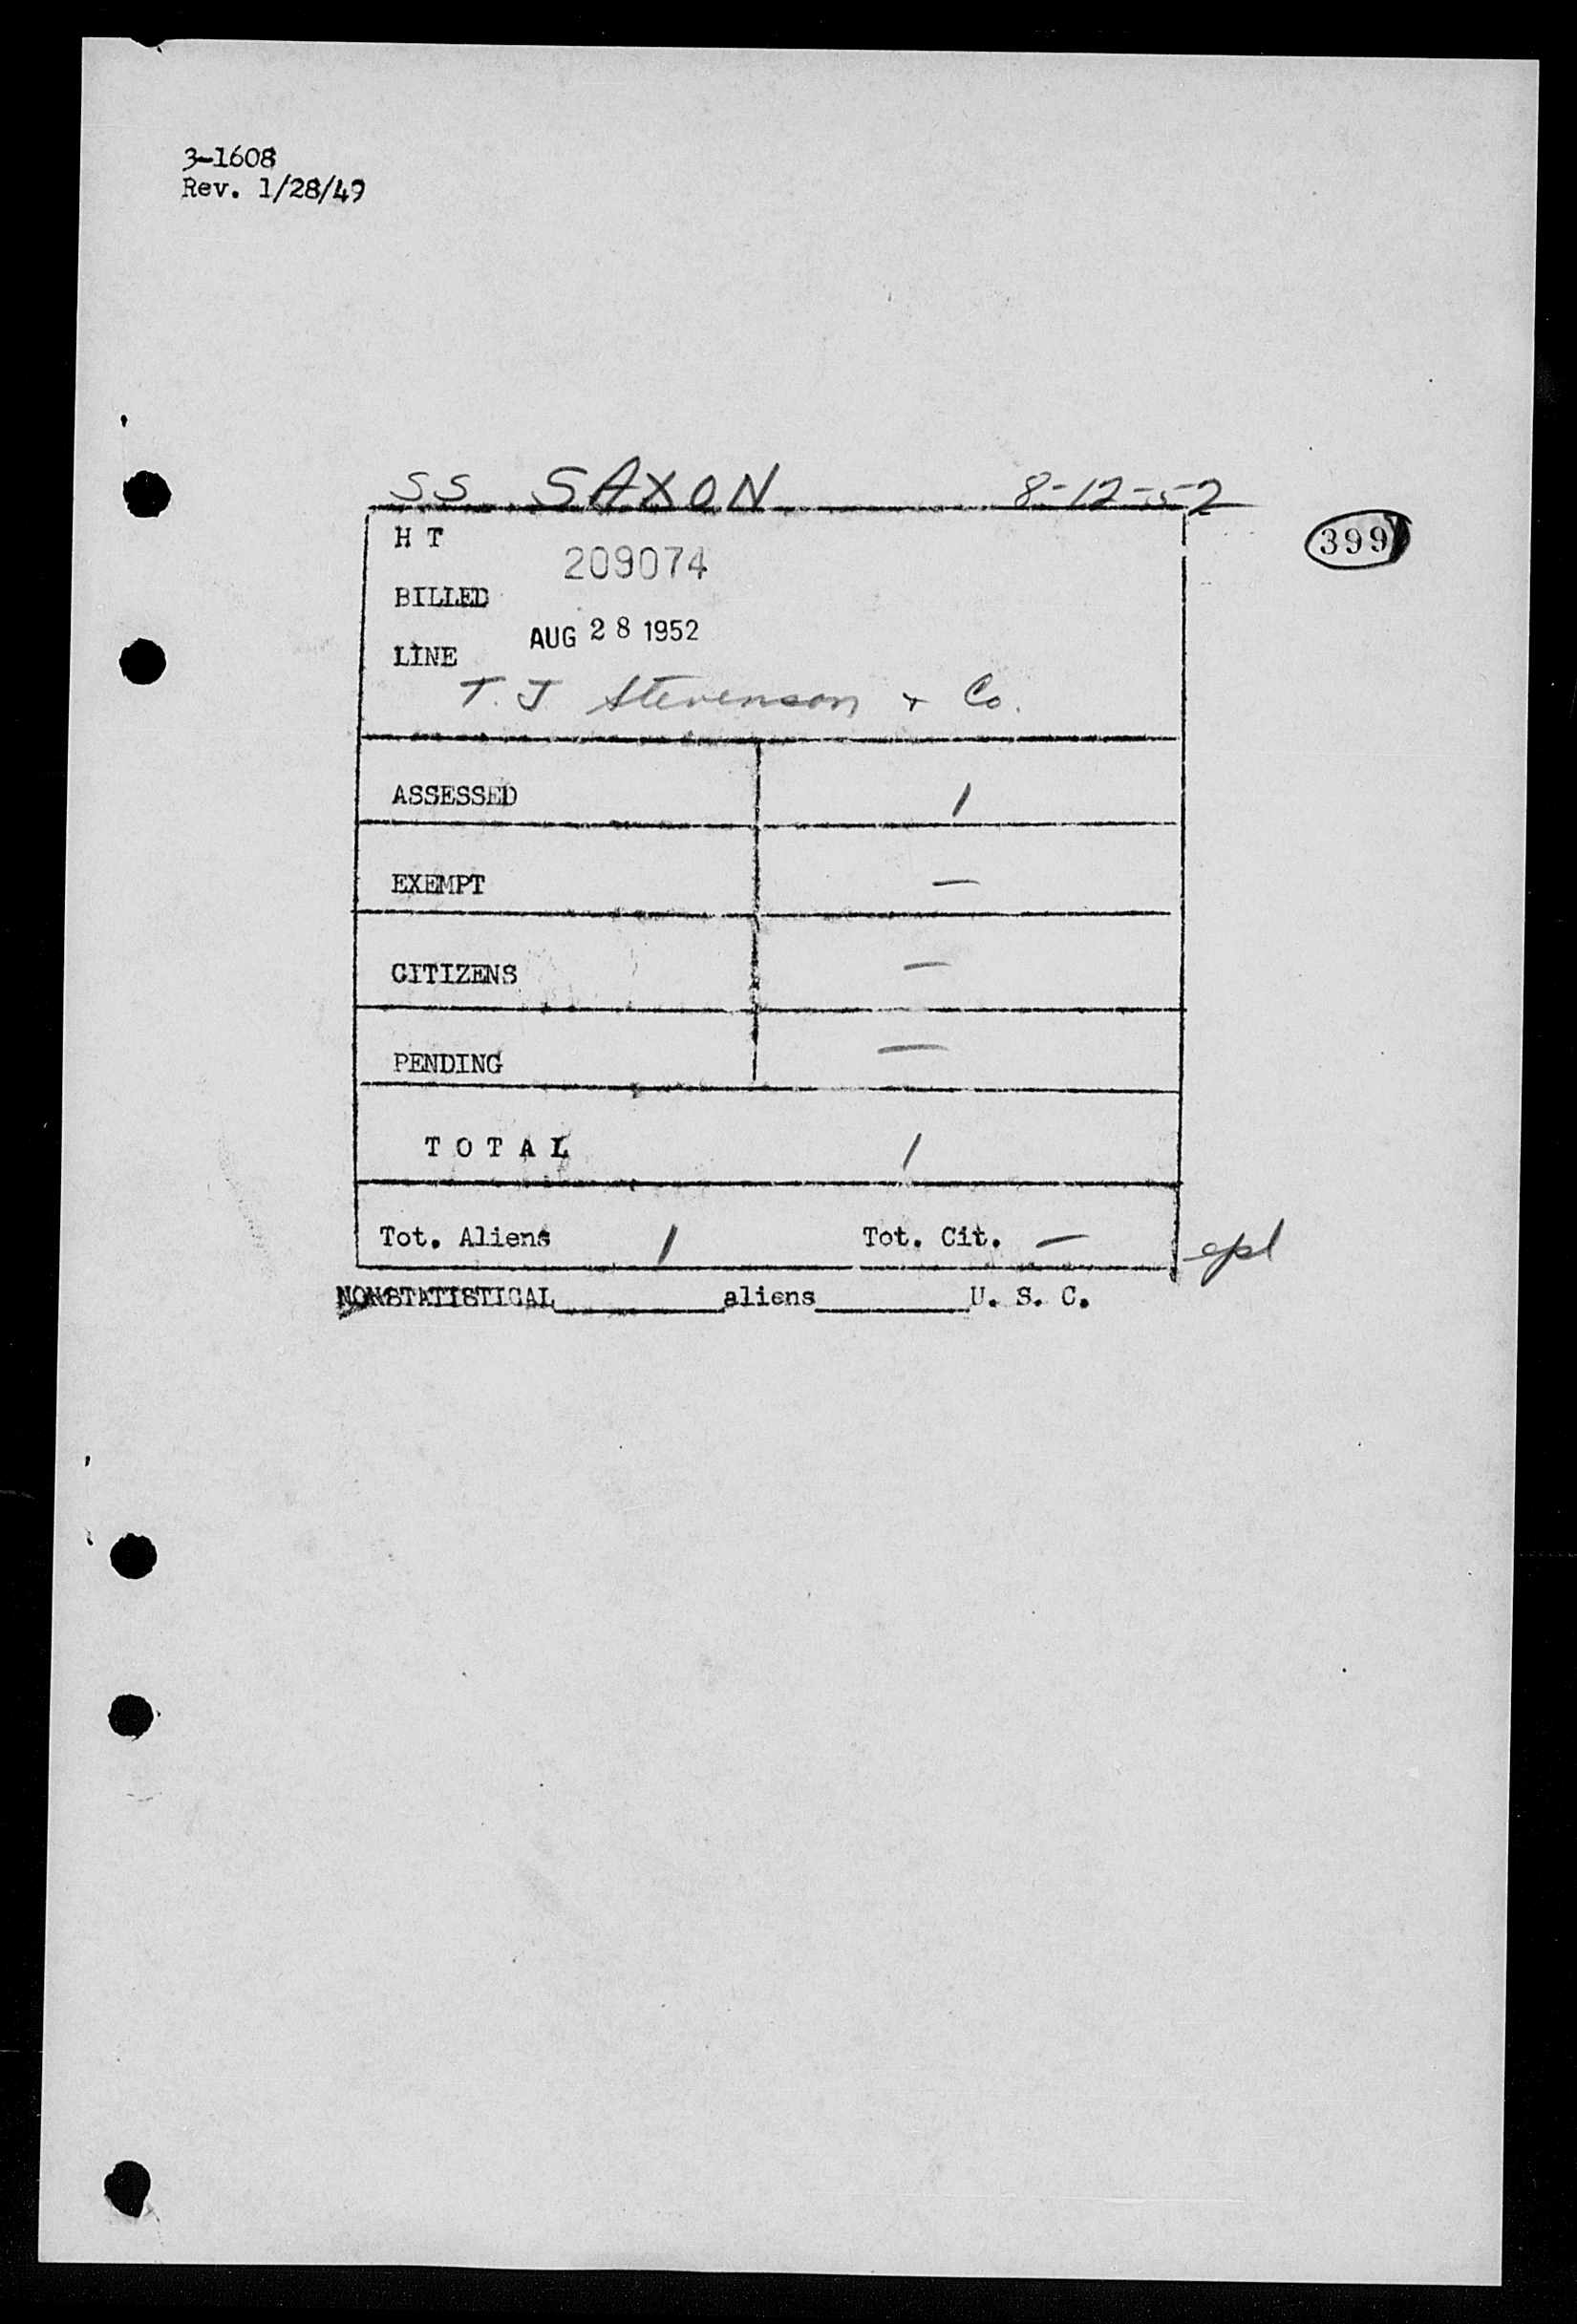 3-1608
Rev. 1/28/49
SS SAXON 8-12-52
399
H T
209074
BILLED
AUG 28 1952
LINE
T. J. Stevenson + Co.
ASSESSED 1
EXEMPT —
CITIZENS —
PENDING —
T O T A L 1
Tot. Aliens 1 Tot. Cit. —
NONSTATISTICAL________aliens________U. S. C.